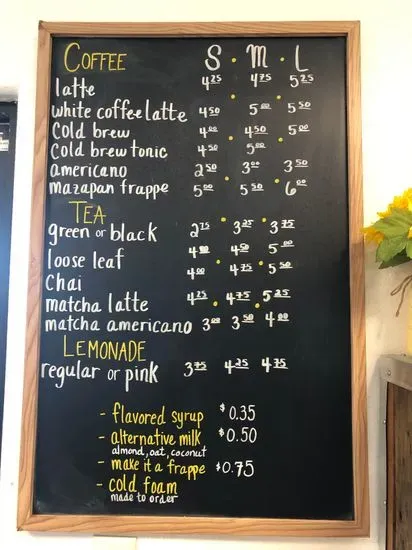 COFFEE S · M · L
latte 4.25 4.75 5.25
white coffee latte 4.50 5.00 5.50
cold brew 4.00 4.50 5.00
cold brew tonic 4.50 5.00
americano 2.50 3.00 3.50
mazapan frappe 5.00 5.50 6.00
TEA
green or black 2.75 3.25 3.75
loose leaf 4.50 5.00
chai 4.00 4.75 5.50
matcha latte 4.25 4.75 5.25
matcha americano 3.00 3.50 4.00
LEMONADE
regular or pink 3.75 4.25 4.75
- flavored syrup $0.35
- alternative milk $0.50
almond, oat, coconut
- make it a frappe $0.75
- cold foam
made to order